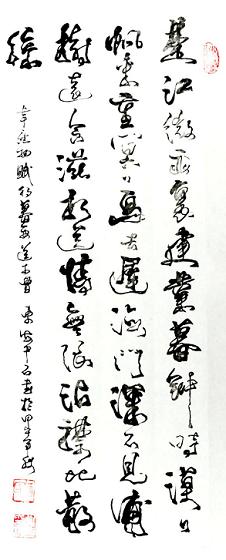 楚江微雨裏建業暮鐘時漠々
帆來重冥々鳥去遲海門深不見浦
樹遠含滋相送情無限沾襟比散
絲
韋應物賦得暮雨送李曹